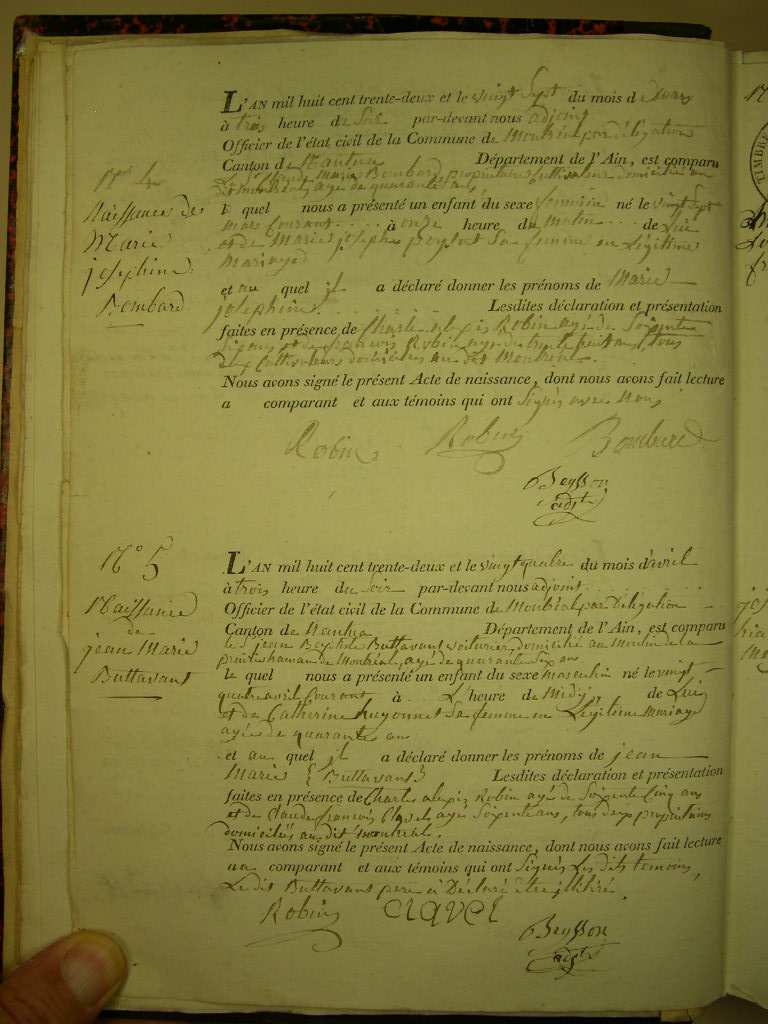 N° 4
Naissance de
Marie
josephine
Bombard
L'AN mil huit cent trente-deux et le vingt Sept du mois de mars
à trois heure du Soir par-devant nous adjoint
Officier de l'état civil de la Commune de Montréal par délégation
Canton de Nantua Département de l'Ain, est comparu
Marie Bombard propriétaire Cultivateur domicilié au
dit montréal, agé de quarante ans,
le quel nous a présenté un enfant du sexe feminin né le vingt Sept
Mars Courant à onze heure du Matin de Lui
et de Marie josephe Sa femme en Légitime
Mariage
et au quel il a déclaré donner les prénoms de Marie
josephine Lesdites déclaration et présentation
faites en présence de Charle alexis Robin agé de Soixante
ans et de françois Robin agé de trente huit ans, tous
deux Cultivateurs domiciliés au dit Montréal.
Nous avons signé le présent Acte de naissance, dont nous avons fait lecture
a comparant et aux témoins qui ont Signés avec Nous
Robin Robin Bombard
Beysson
adjt
N° 5
Naissance
de
jean Marie
Buttavant
L'AN mil huit cent trente-deux et le vingt quatre du mois d'avril
à trois heure du Soir par-devant nous adjoint
Officier de l'état civil de la Commune de Montréal par Délégation
Canton de Nantua Département de l'Ain, est comparu
le s jean Baptiste Buttavant voiturier domicilié au Moulin de la
de Montréal, agé de quarante Six ans
le quel nous a présenté un enfant du sexe masculin né le vingt
quatre avril Courant à L' heure de Midy, de Lui
et de Catherine hugonnet Sa femme en Légitime Mariage
agée de quarante ans
et au quel il a déclaré donner les prénoms de jean
Marie { Buttavant } Lesdites déclaration et présentation
faites en présence de Charles alexis Robin agé de Soixante Cinq ans
et de Claude françois Clavel agé Soixante ans, tous deux propriétaires
domiciliés au dit montréal.
Nous avons signé le présent Acte de naissance, dont nous avons fait lecture
au comparant et aux témoins qui ont Signés Les dits temoins,
Le dit Buttavant pere a Déclaré être illitéré
Robin CLAVEL
Beysson
adjt
TIMBRE